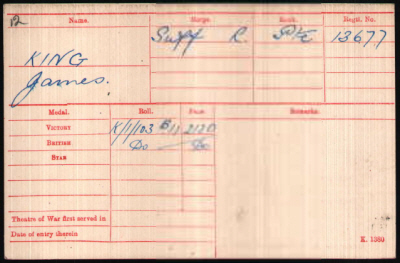 Name. Corps. Rank. Regtl. No.
KING Suff R. Pte 13677
James.
Medal. Roll. Page. Remarks.
VICTORY K/1/103 B11 2120
BRITISH Do Do
STAR
Theatre of War first served in
Date of entry therein
K. 1380